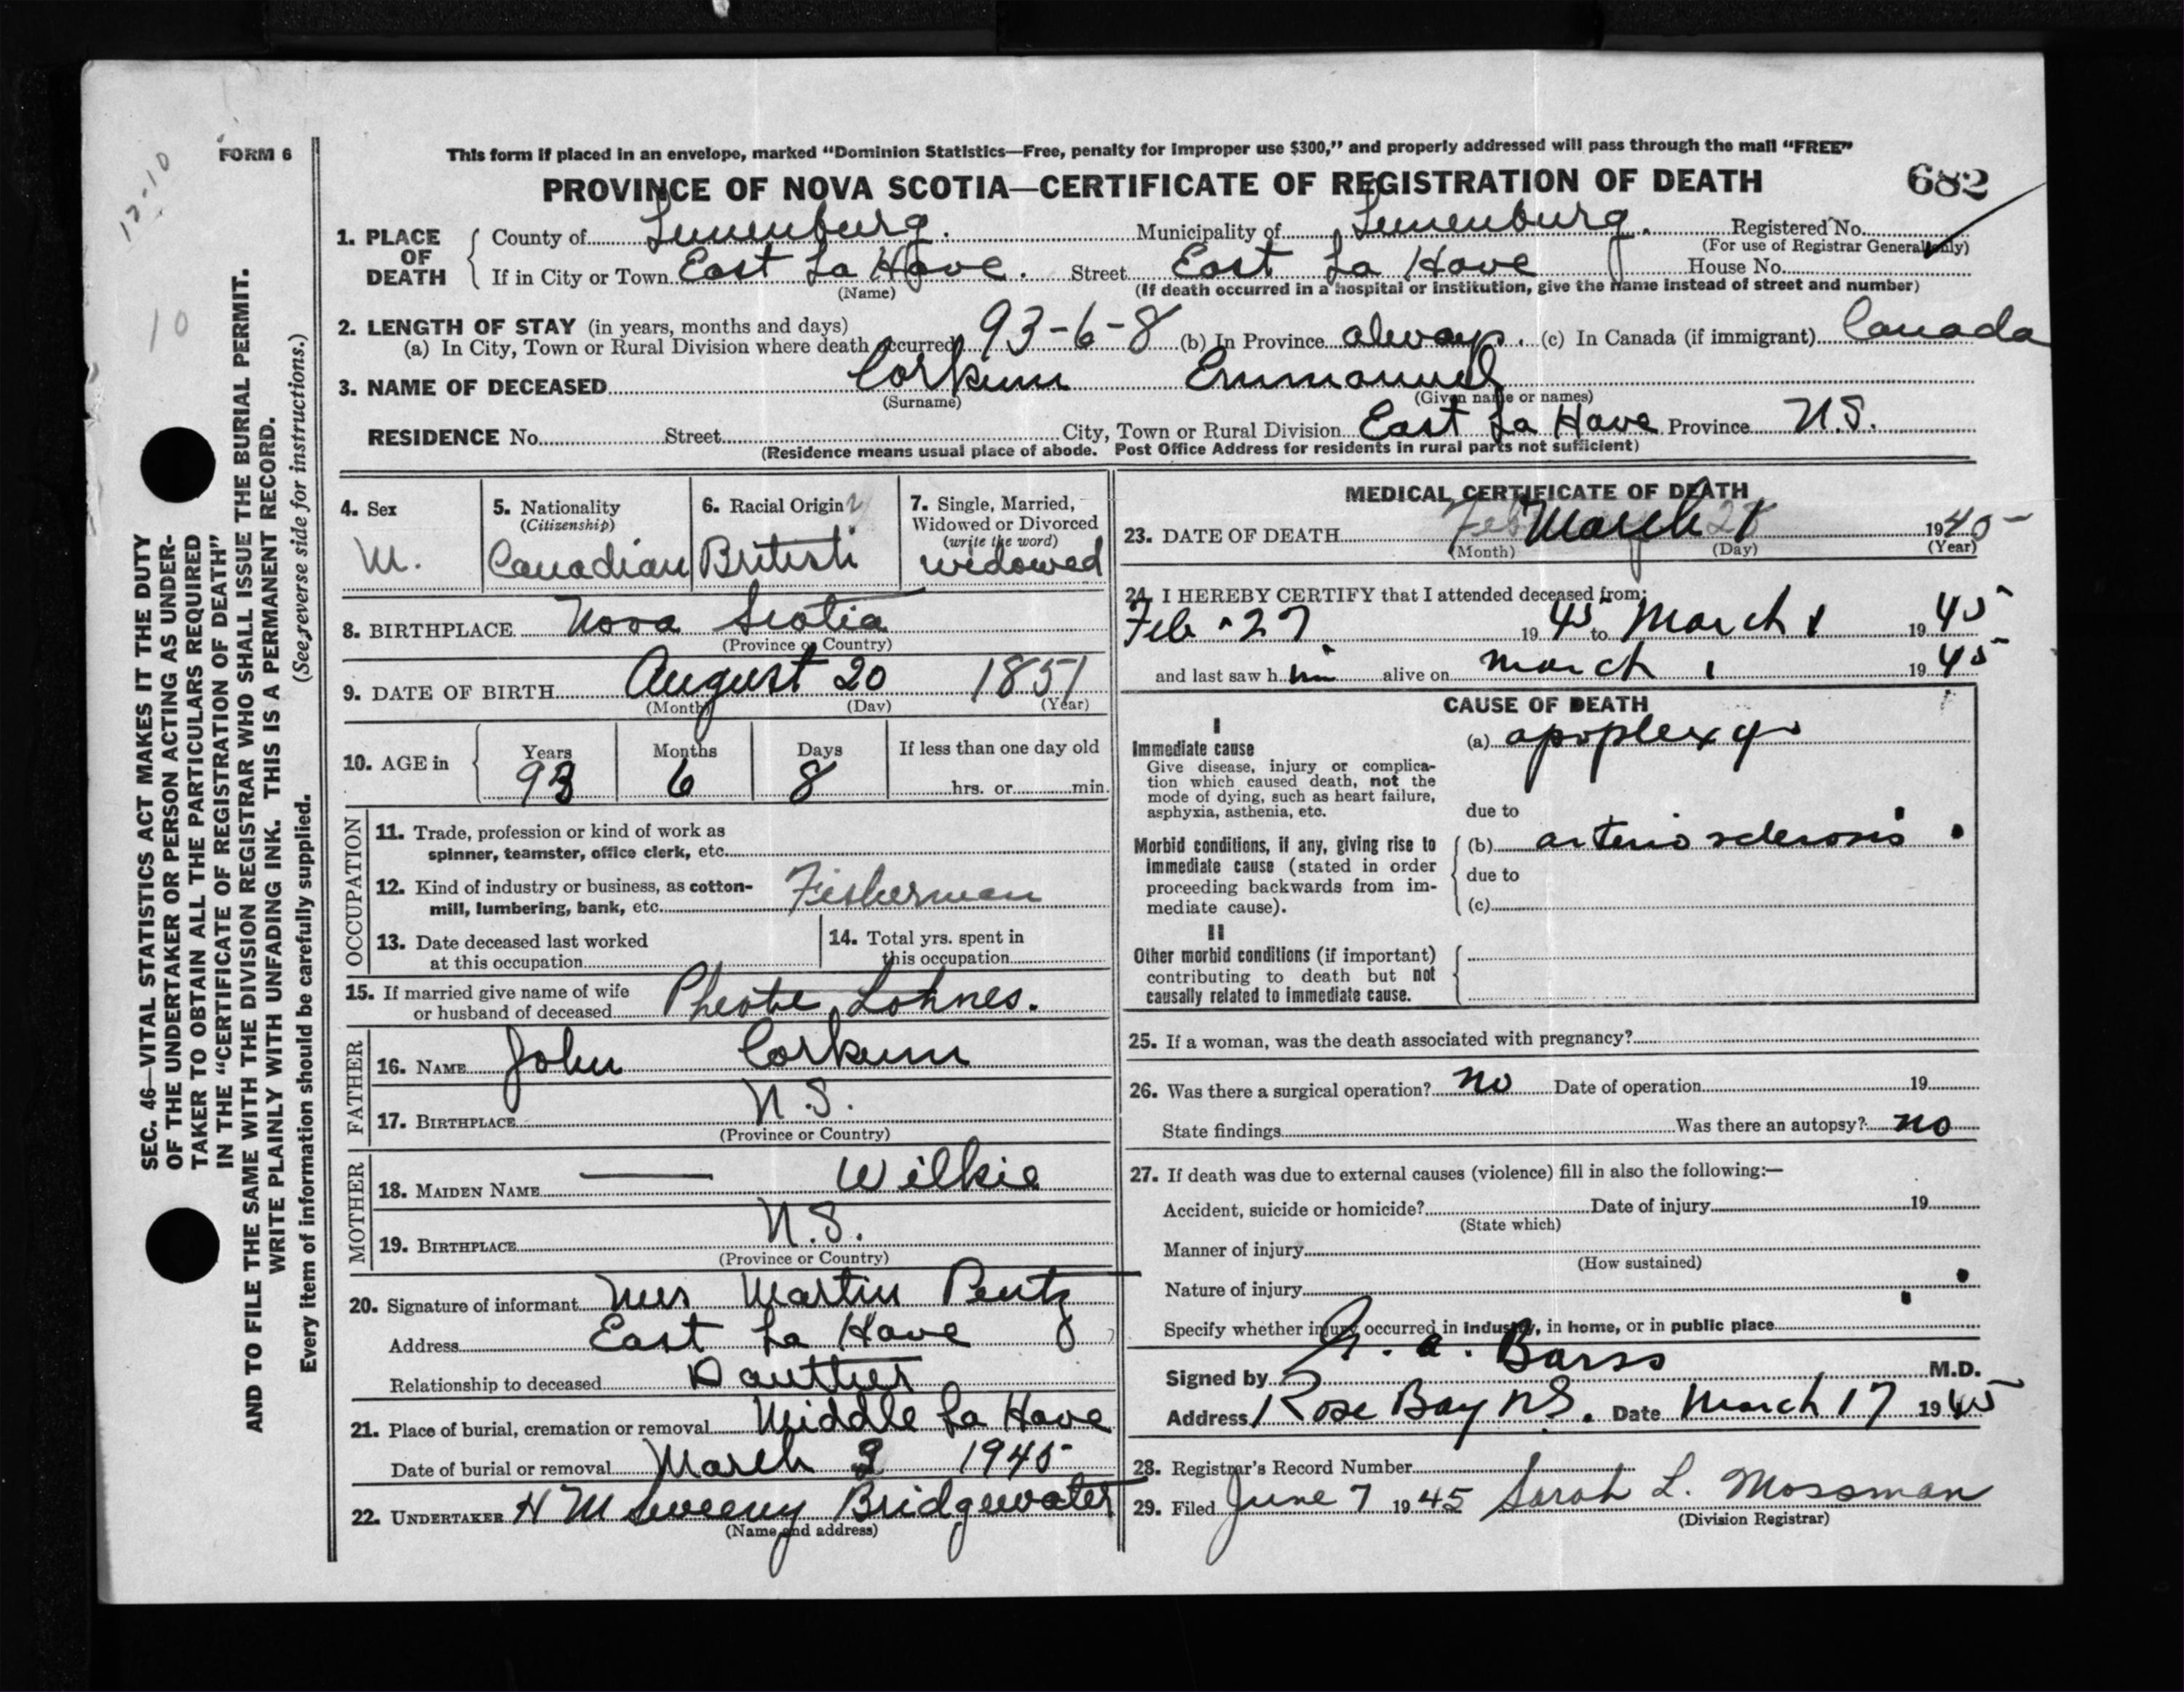 12-10
10
FORM 6
This form if placed in an envelope, marked “Dominion Statistics—Free, penalty for improper use $300,” and properly addressed will pass through the mail “FREE”
PROVINCE OF NOVA SCOTIA—CERTIFICATE OF REGISTRATION OF DEATH
682
SEC. 46—VITAL STATISTICS ACT MAKES IT THE DUTY
OF THE UNDERTAKER OR PERSON ACTING AS UNDER-
TAKER TO OBTAIN ALL THE PARTICULARS REQUIRED
IN THE “CERTIFICATE OF REGISTRATION OF DEATH”
AND TO FILE THE SAME WITH THE DIVISION REGISTRAR WHO SHALL ISSUE THE BURIAL PERMIT.
WRITE PLAINLY WITH UNFADING INK. THIS IS A PERMANENT RECORD.
Every item of information should be carefully supplied. (See reverse side for instructions.)
1. PLACE OF DEATH
County of Lunenburg. Municipality of Lunenburg. Registered No.
(For use of Registrar General only)
If in City or Town East La Have. Street East La Have House No.
(Name) (If death occurred in a hospital or institution, give the name instead of street and number)
2. LENGTH OF STAY (in years, months and days)
(a) In City, Town or Rural Division where death occurred 93-6-8 (b) In Province always. (c) In Canada (if immigrant) Canada
3. NAME OF DECEASED Corkum Emmanuel
(Surname) (Given name or names)
RESIDENCE No. Street City, Town or Rural Division East La Have Province N.S.
(Residence means usual place of abode. Post Office Address for residents in rural parts not sufficient)
4. Sex
M.
5. Nationality
(Citizenship)
Canadian
6. Racial Origin
British
7. Single, Married,
Widowed or Divorced
(write the word)
widowed
8. BIRTHPLACE Nova Scotia
(Province or Country)
9. DATE OF BIRTH August 20 1851
(Month) (Day) (Year)
10. AGE in
Years Months Days If less than one day old
93 6 8 hrs. or min.
OCCUPATION
11. Trade, profession or kind of work as
spinner, teamster, office clerk, etc.
12. Kind of industry or business, as cotton-
mill, lumbering, bank, etc. Fisherman
13. Date deceased last worked
at this occupation
14. Total yrs. spent in
this occupation
15. If married give name of wife
or husband of deceased Pheobe Lohnes.
FATHER
16. NAME John Corkum
17. BIRTHPLACE N.S.
(Province or Country)
MOTHER
18. MAIDEN NAME — Wilkie
19. BIRTHPLACE N.S.
(Province or Country)
20. Signature of informant Mrs Martin Pentz
Address East La Have
Relationship to deceased Dautter
21. Place of burial, cremation or removal Middle La Have
Date of burial or removal March 3 1945
22. UNDERTAKER H M Sweeny Bridgewater
(Name and address)
MEDICAL CERTIFICATE OF DEATH
23. DATE OF DEATH March 1 1945
(Month) (Day) (Year)
24. I HEREBY CERTIFY that I attended deceased from:
Feb - 27 1945 to March 1 1945
and last saw him alive on march 1 1945
CAUSE OF DEATH
I
Immediate cause (a) apoplexy
Give disease, injury or complica-
tion which caused death, not the
mode of dying, such as heart failure,
asphyxia, asthenia, etc. due to
Morbid conditions, if any, giving rise to (b) arterio sclerosis
immediate cause (stated in order
proceeding backwards from im- due to
mediate cause). (c)
II
Other morbid conditions (if important)
contributing to death but not
causally related to immediate cause.
25. If a woman, was the death associated with pregnancy?
26. Was there a surgical operation? no Date of operation 19
State findings Was there an autopsy? no
27. If death was due to external causes (violence) fill in also the following:—
Accident, suicide or homicide? Date of injury 19
(State which)
Manner of injury
(How sustained)
Nature of injury
Specify whether injury occurred in industry, in home, or in public place
Signed by G. A. Barss M.D.
Address Rose Bay N.S. Date March 17 1945
28. Registrar's Record Number
29. Filed June 7 1945 Sarah L. Mossman
(Division Registrar)